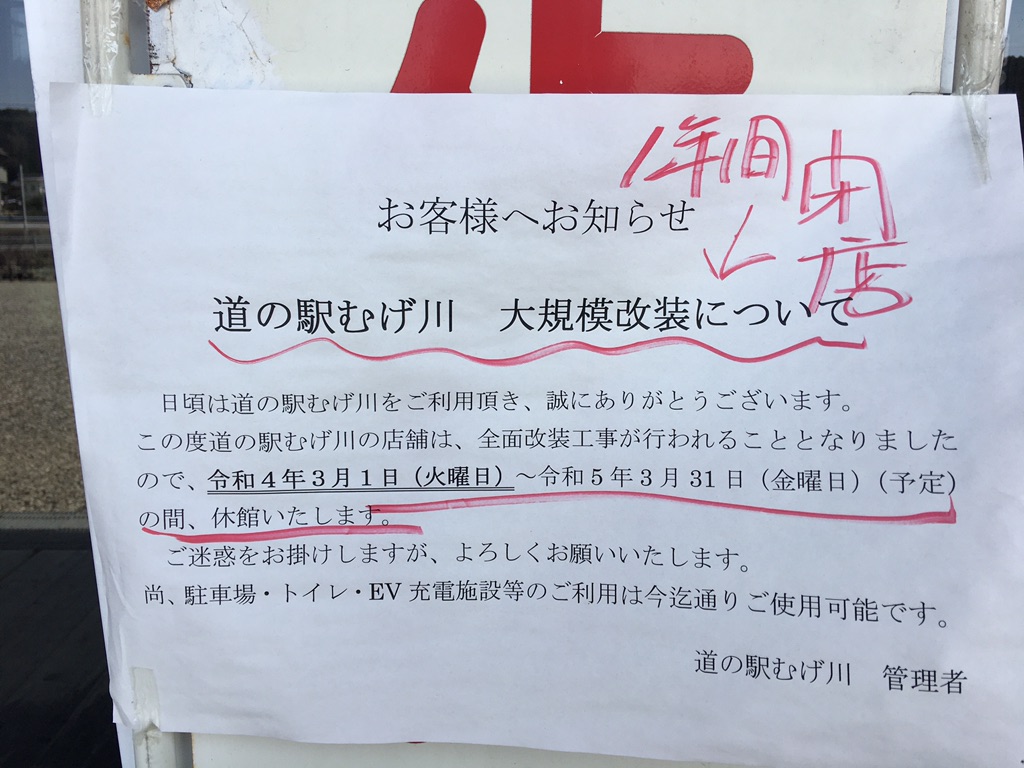 1年間
閉店
お客様へお知らせ
道の駅むげ川　大規模改装について
日頃は道の駅むげ川をご利用頂き、誠にありがとうございます。
この度道の駅むげ川の店舗は、全面改装工事が行われることとなりました
ので、令和4年3月1日（火曜日）～令和5年3月31日（金曜日）（予定）
の間、休館いたします。
ご迷惑をお掛けしますが、よろしくお願いいたします。
尚、駐車場・トイレ・EV充電施設等のご利用は今迄通りご使用可能です。
道の駅むげ川　管理者